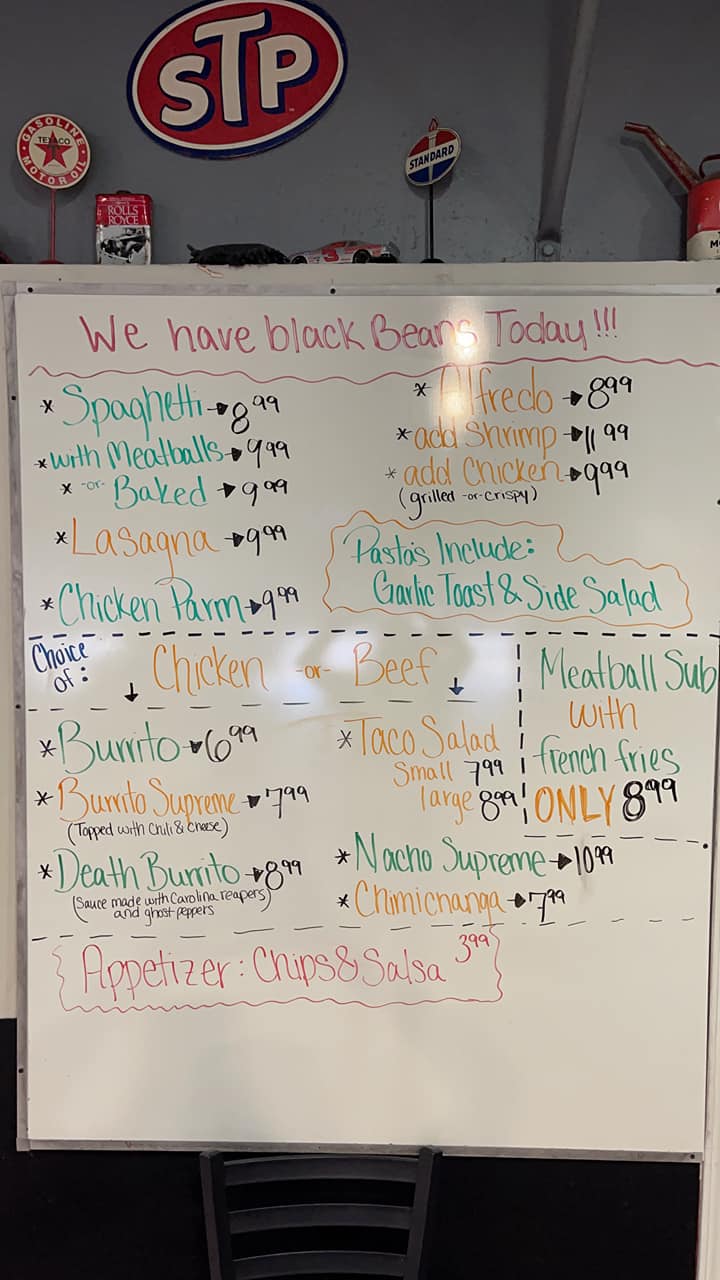 STP
GASOLINE
TEXACO
MOTOR OIL
STANDARD
ROLLS
ROYCE
3
We have black Beans Today!!!
* Spaghetti → 8.99
* with Meatballs → 9.99
* -or- Baked → 9.99
* Lasagna → 9.99
* Chicken Parm → 9.99
* Alfredo → 8.99
* add Shrimp → 11.99
* add Chicken → 9.99
(grilled -or- crispy)
Pasta's Include:
Garlic Toast & Side Salad
Choice
of:
↓ Chicken -or- Beef ↓
* Burrito → 6.99
* Burrito Supreme → 7.99
(Topped with Chili & Cheese)
* Death Burrito → 8.99
(Sauce made with Carolina reapers
and ghost peppers)
* Taco Salad
Small 7.99
large 8.99
* Nacho Supreme → 10.99
* Chimichanga → 7.99
Meatball Sub
with
french fries
ONLY 8.99
Appetizer: Chips & Salsa 3.99